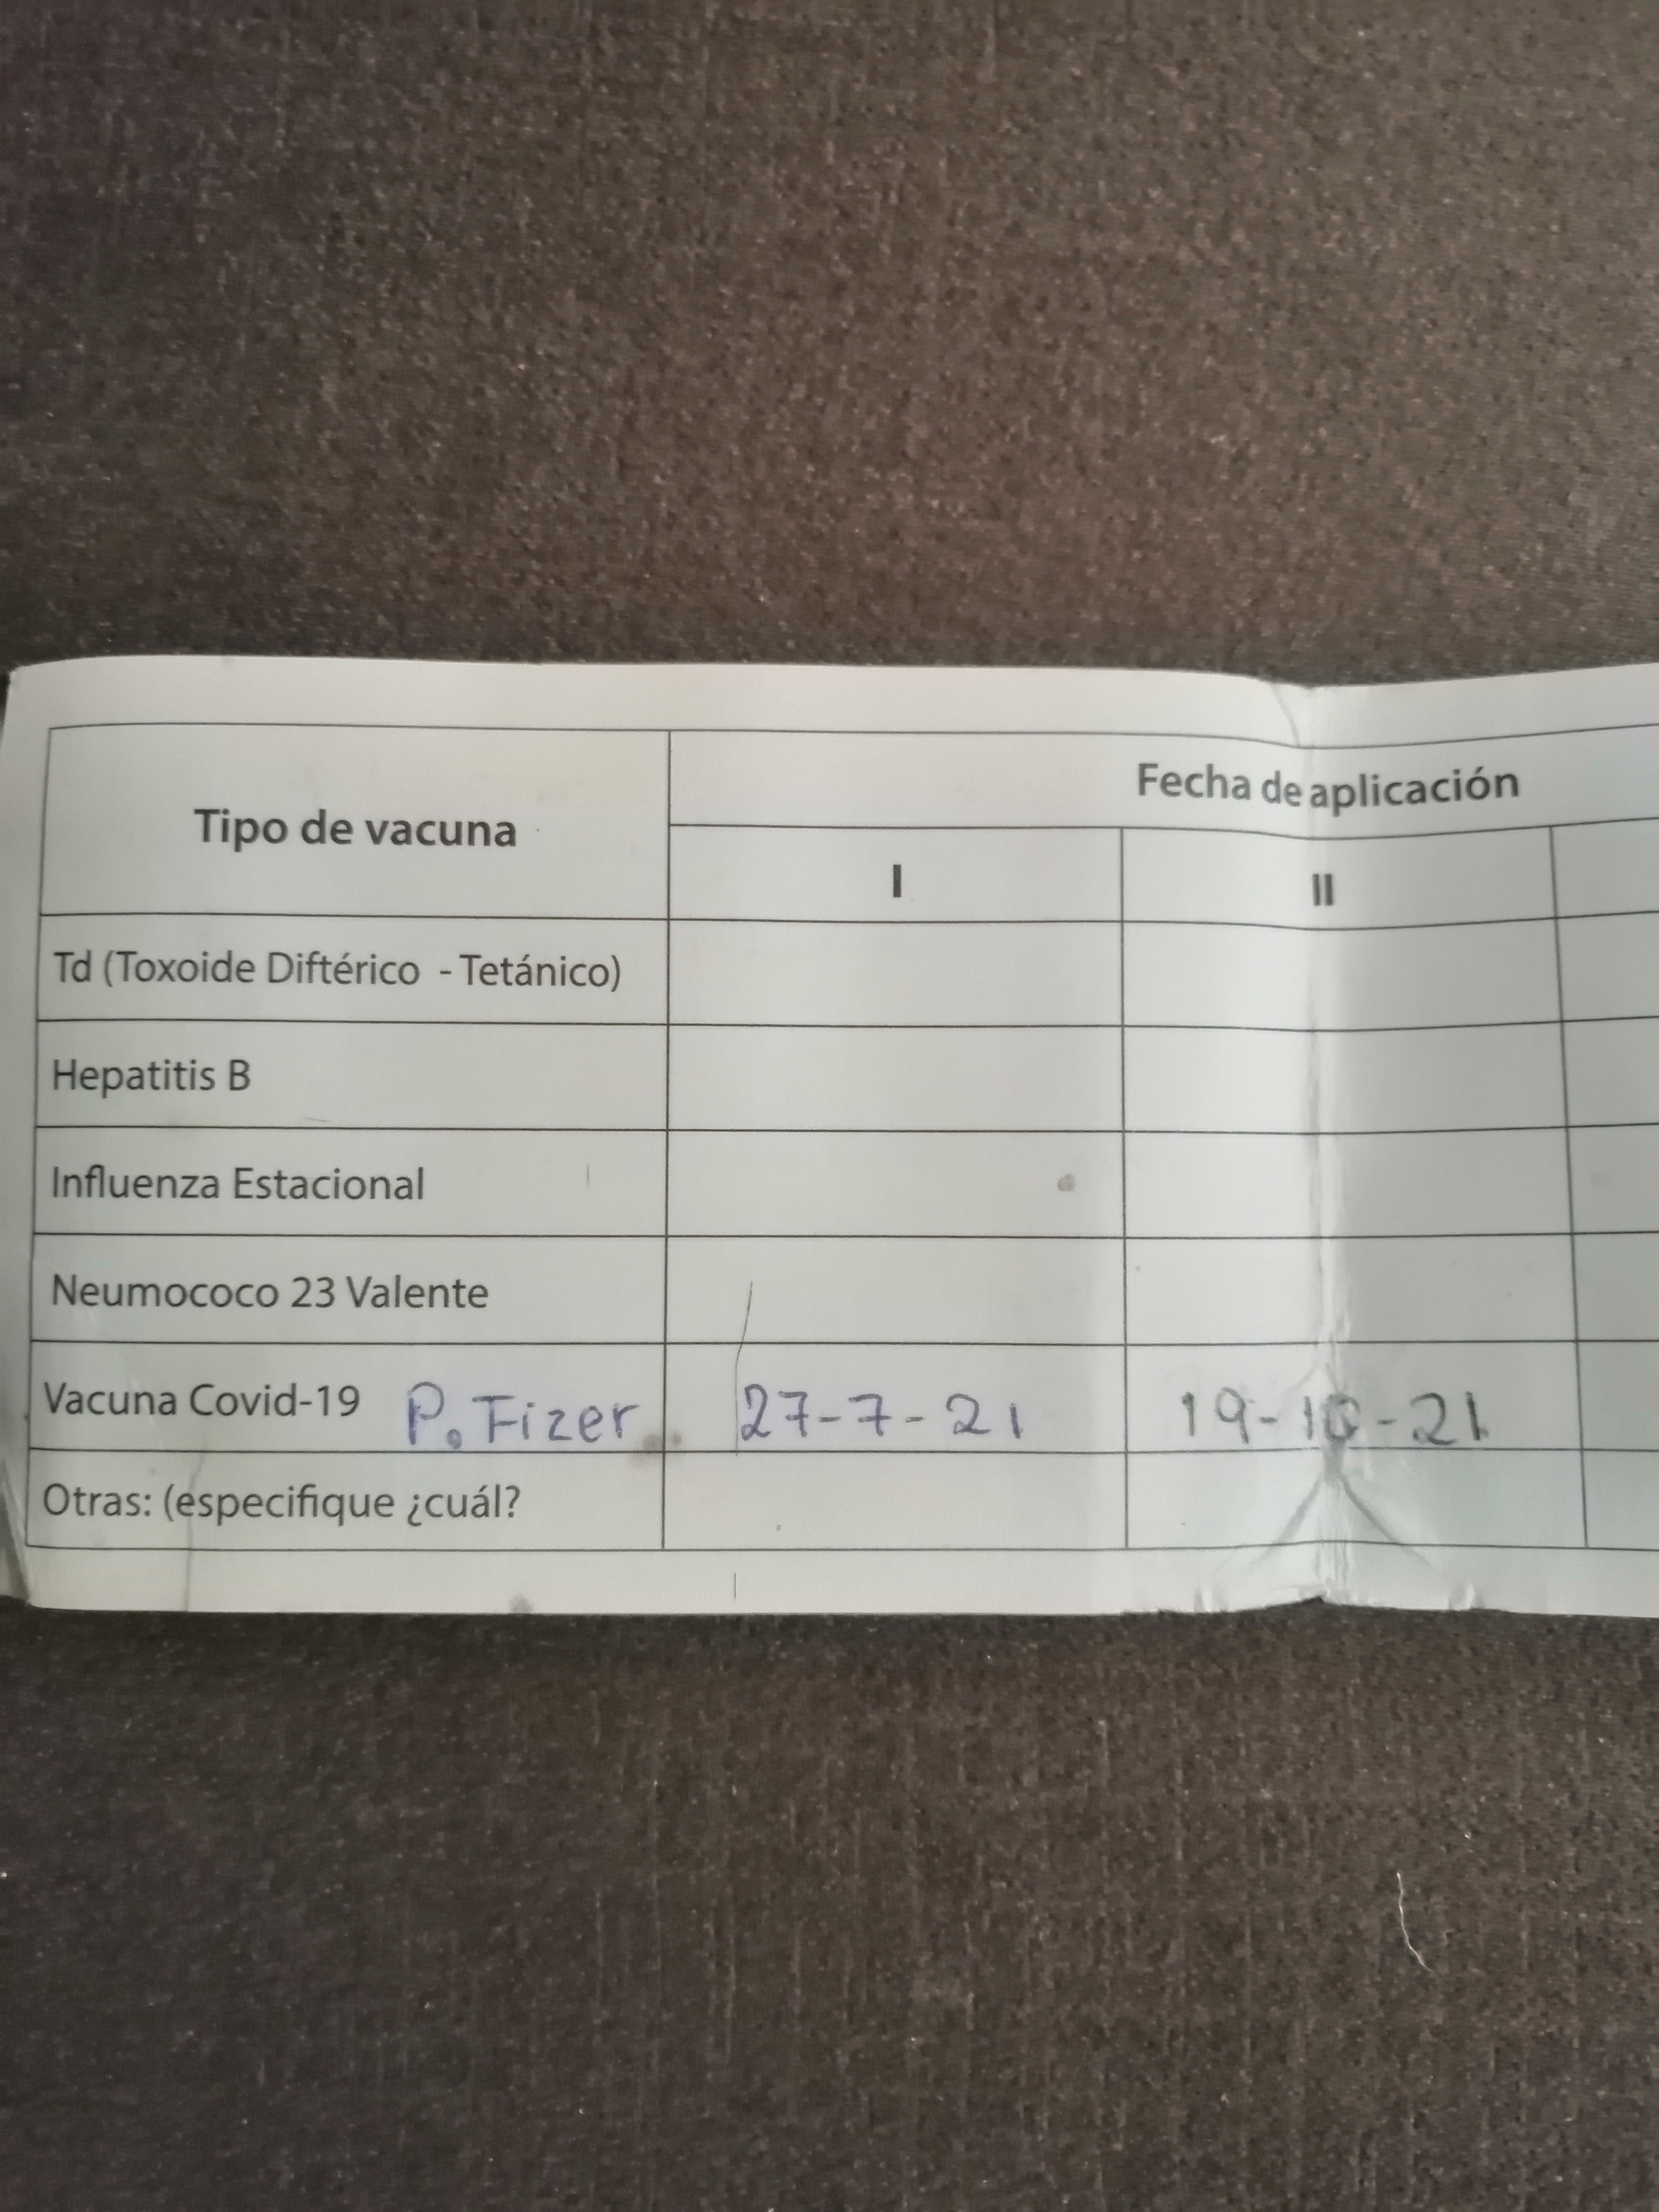 Tipo de vacuna
Fecha de aplicación
I II
Td (Toxoide Diftérico - Tetánico)
Hepatitis B
Influenza Estacional
Neumococo 23 Valente
Vacuna Covid-19 P. Fizer 27-7-21 19-10-21
Otras: (especifique ¿cuál?